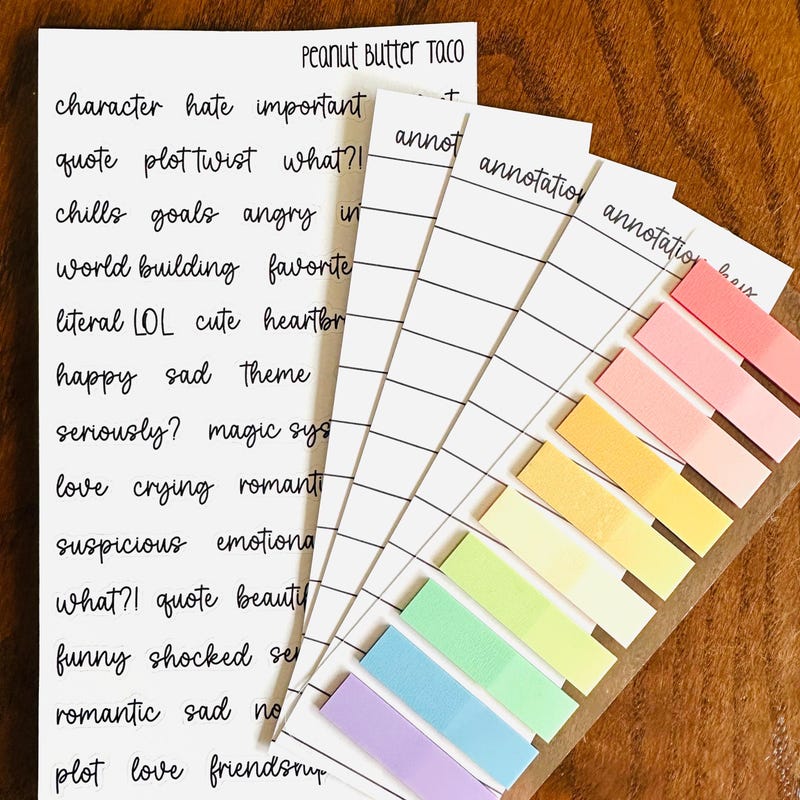 Peanut Butter Taco
character hate important
quote plot twist what?!
chills goals angry
world building favorite
literal LOL cute
happy sad theme
seriously? magic
love crying
suspicious
what?! quote
funny shocked
romantic sad
plot love friendship
annotation
annotation